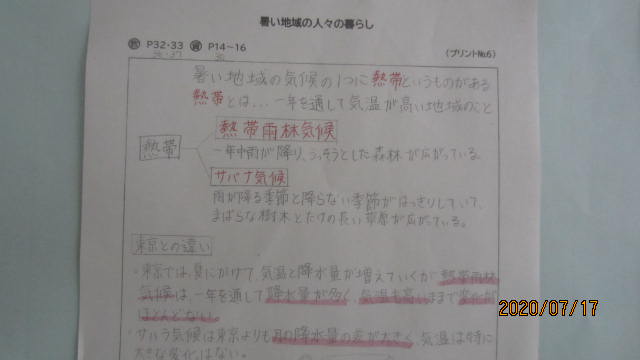 暑い地域の人々の暮らし
教 P32・33 資 P14～16
(プリントNo.6)
暑い地域の気候の1つに熱帯というものがある
熱帯とは... 一年を通して気温が高い地域のこと
熱帯
熱帯雨林気候
一年中雨が降り、うっそうとした森林が広がっている。
サバナ気候
雨が降る季節と降らない季節がはっきりしていて、
まばらな樹木とたけの長い草原が広がっている。
東京との違い
・東京では、夏にかけて、気温と降水量が増えていくが熱帯雨林
気候は、一年を通して降水量が多く、気温も高いままで変化が
ほとんどない
・サバナ気候は東京よりも月の降水量の差が大きく、気温は特に
大きな変化はない。
2020/07/17